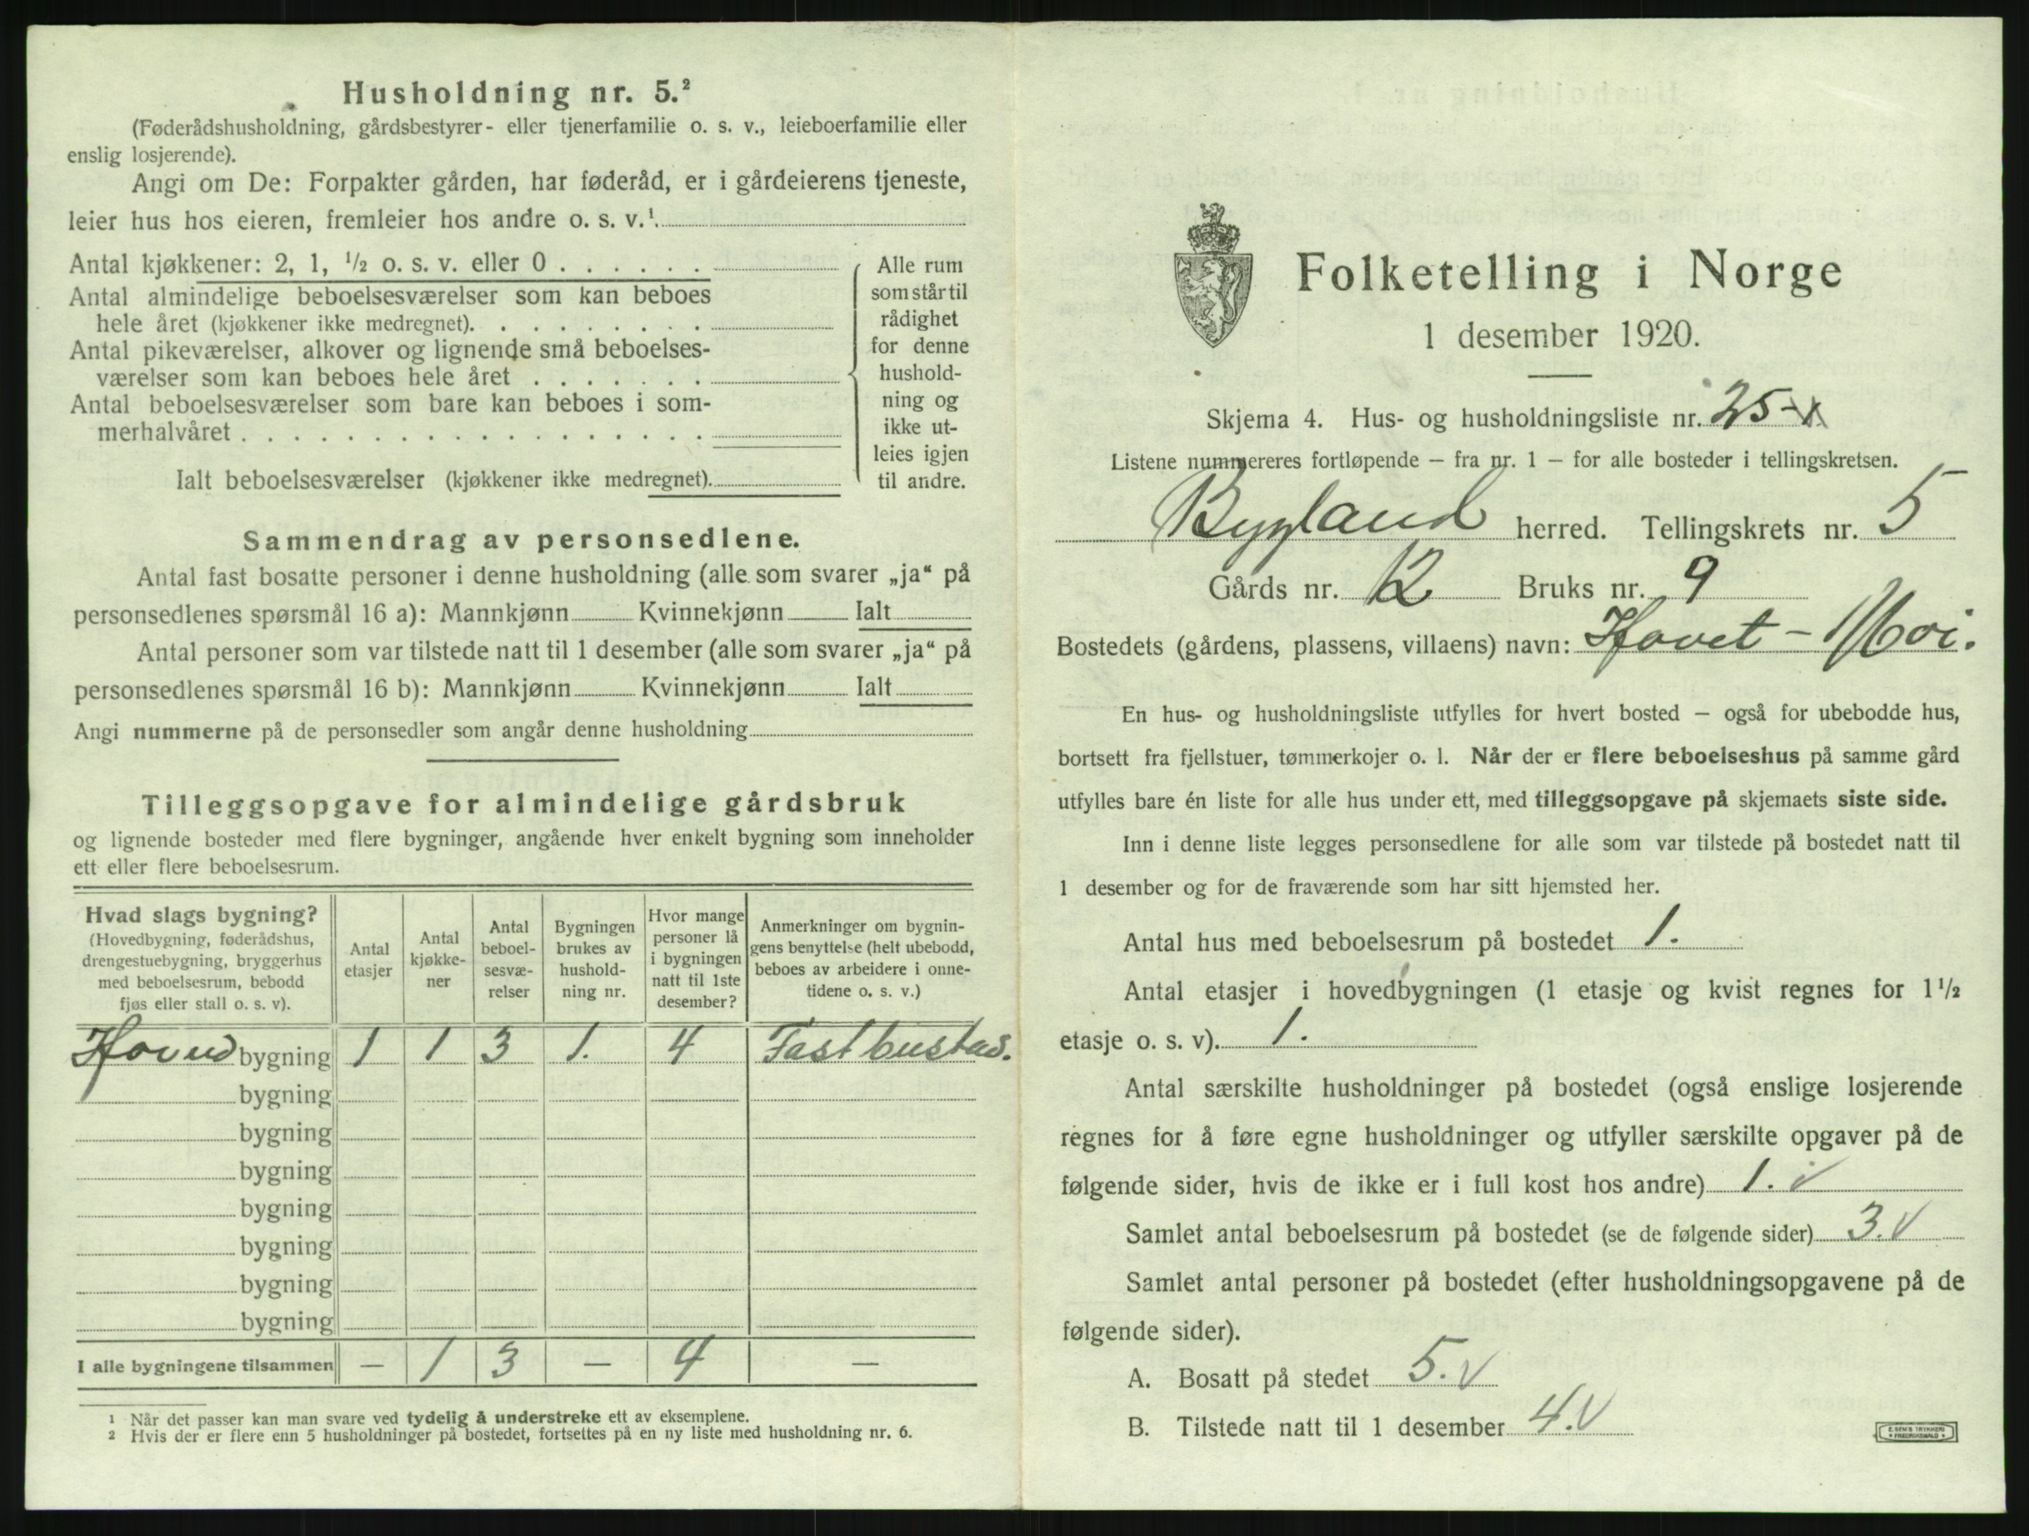 Husholdning nr. 5.²
(Føderådshusholdning, gårdsbestyrer- eller tjenerfamilie o. s. v., leieboerfamilie eller
enslig losjerende).
Angi om De: Forpakter gården, har føderåd, er i gårdeierens tjeneste,
leier hus hos eieren, fremleier hos andre o. s. v.¹
Antal kjøkkener: 2, 1, ½ o. s. v. eller 0 . . . . . .
Antal almindelige beboelsesværelser som kan beboes
hele året (kjøkkener ikke medregnet). . . . . . . . .
Antal pikeværelser, alkover og lignende små beboelses-
værelser som kan beboes hele året . . . . . . .
Antal beboelsesværelser som bare kan beboes i som-
merhalvåret . . . . . . . . . . . . . . . . . .
Ialt beboelsesværelser (kjøkkener ikke medregnet).
Alle rum
som står til
rådighet
for denne
hushold-
ning og
ikke ut-
leies igjen
til andre.
Sammendrag av personsedlene.
Antal fast bosatte personer i denne husholdning (alle som svarer „ja“ på
personsedlenes spørsmål 16 a): Mannkjønn Kvinnekjønn Ialt
Antal personer som var tilstede natt til 1 desember (alle som svarer „ja“ på
personsedlenes spørsmål 16 b): Mannkjønn Kvinnekjønn Ialt
Angi nummerne på de personsedler som angår denne husholdning
Tilleggsopgave for almindelige gårdsbruk
og lignende bosteder med flere bygninger, angående hver enkelt bygning som inneholder
ett eller flere beboelsesrum.
Hvad slags bygning?
(Hovedbygning, føderådshus,
drengestuebygning, bryggerhus
med beboelsesrum, bebodd
fjøs eller stall o. s. v).
Antal
etasjer
Antal
kjøkke-
ner
Antal
beboel-
sesvæ-
relser
Bygningen
brukes av
hushold-
ning nr.
Hvor mange
personer lå
i bygningen
natt til 1ste
desember?
Anmerkninger om bygnin-
gens benyttelse (helt ubebodd,
beboes av arbeidere i onne-
tidene o. s. v.)
Hoved bygning 1 1 3 1. 4 Fast bustad.
bygning
bygning
bygning
bygning
bygning
bygning
bygning
I alle bygningene tilsammen — 1 3 — 4 —
¹ Når det passer kan man svare ved tydelig å understreke ett av eksemplene.
² Hvis der er flere enn 5 husholdninger på bostedet, fortsettes på en ny liste med husholdning nr. 6.
Folketelling i Norge
1 desember 1920.
Skjema 4. Hus- og husholdningsliste nr. 25
Listene nummereres fortløpende – fra nr. 1 – for alle bosteder i tellingskretsen.
Bygland herred. Tellingskrets nr. 5
Gårds nr. 12 Bruks nr. 9
Bostedets (gårdens, plassens, villaens) navn: Hovet – Moi.
En hus- og husholdningsliste utfylles for hvert bosted – også for ubebodde hus,
bortsett fra fjellstuer, tømmerkojer o. l. Når der er flere beboelseshus på samme gård
utfylles bare én liste for alle hus under ett, med tilleggsopgave på skjemaets siste side.
Inn i denne liste legges personsedlene for alle som var tilstede på bostedet natt til
1 desember og for de fraværende som har sitt hjemsted her.
Antal hus med beboelsesrum på bostedet 1.
Antal etasjer i hovedbygningen (1 etasje og kvist regnes for 1½
etasje o. s. v). 1.
Antal særskilte husholdninger på bostedet (også enslige losjerende
regnes for å føre egne husholdninger og utfyller særskilte opgaver på de
følgende sider, hvis de ikke er i full kost hos andre) 1. ✓
Samlet antal beboelsesrum på bostedet (se de følgende sider) 3. ✓
Samlet antal personer på bostedet (efter husholdningsopgavene på de
følgende sider).
A. Bosatt på stedet 5. ✓
B. Tilstede natt til 1 desember 4. ✓